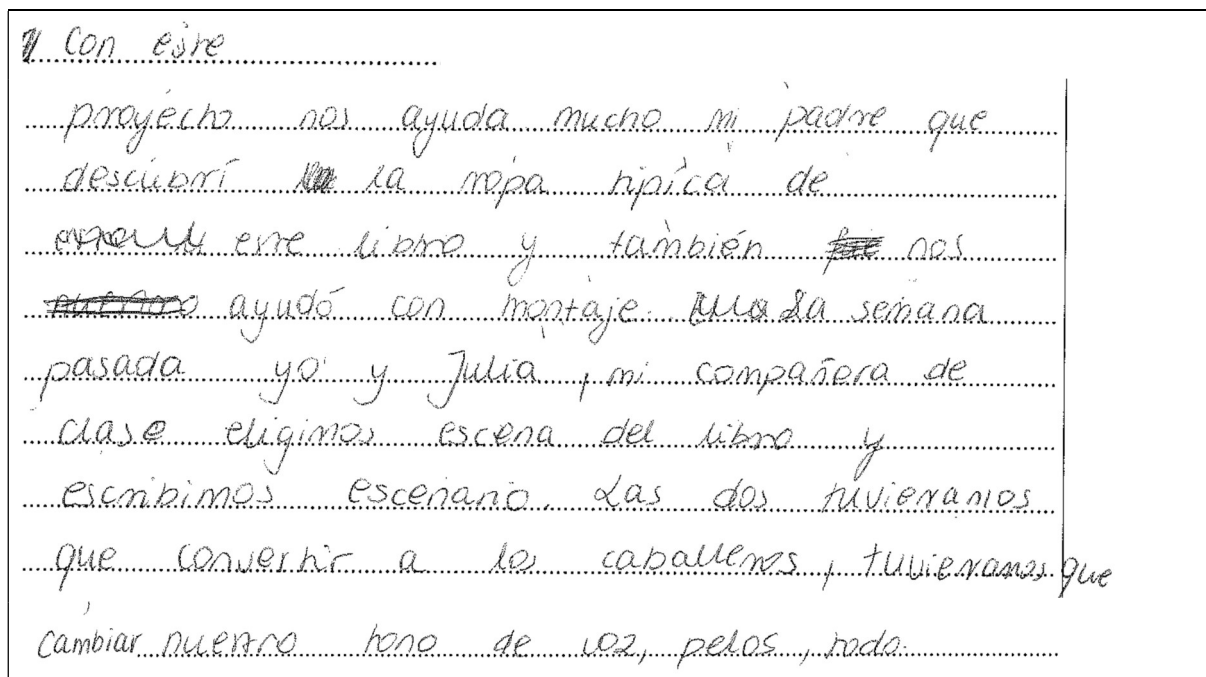 Con este
proyecto nos ayuda mucho mi padre que
descubrí la ropa típica de
este libro y también nos
ayudó con montaje. La semana
pasada yo y Julia, mi compañera de
clase eligimos escena del libro y
escribimos escenario. Las dos tuvieramos
que convertir a los caballeros, tuvieramos que
cambiar nuestro tono de voz, pelos, todo.